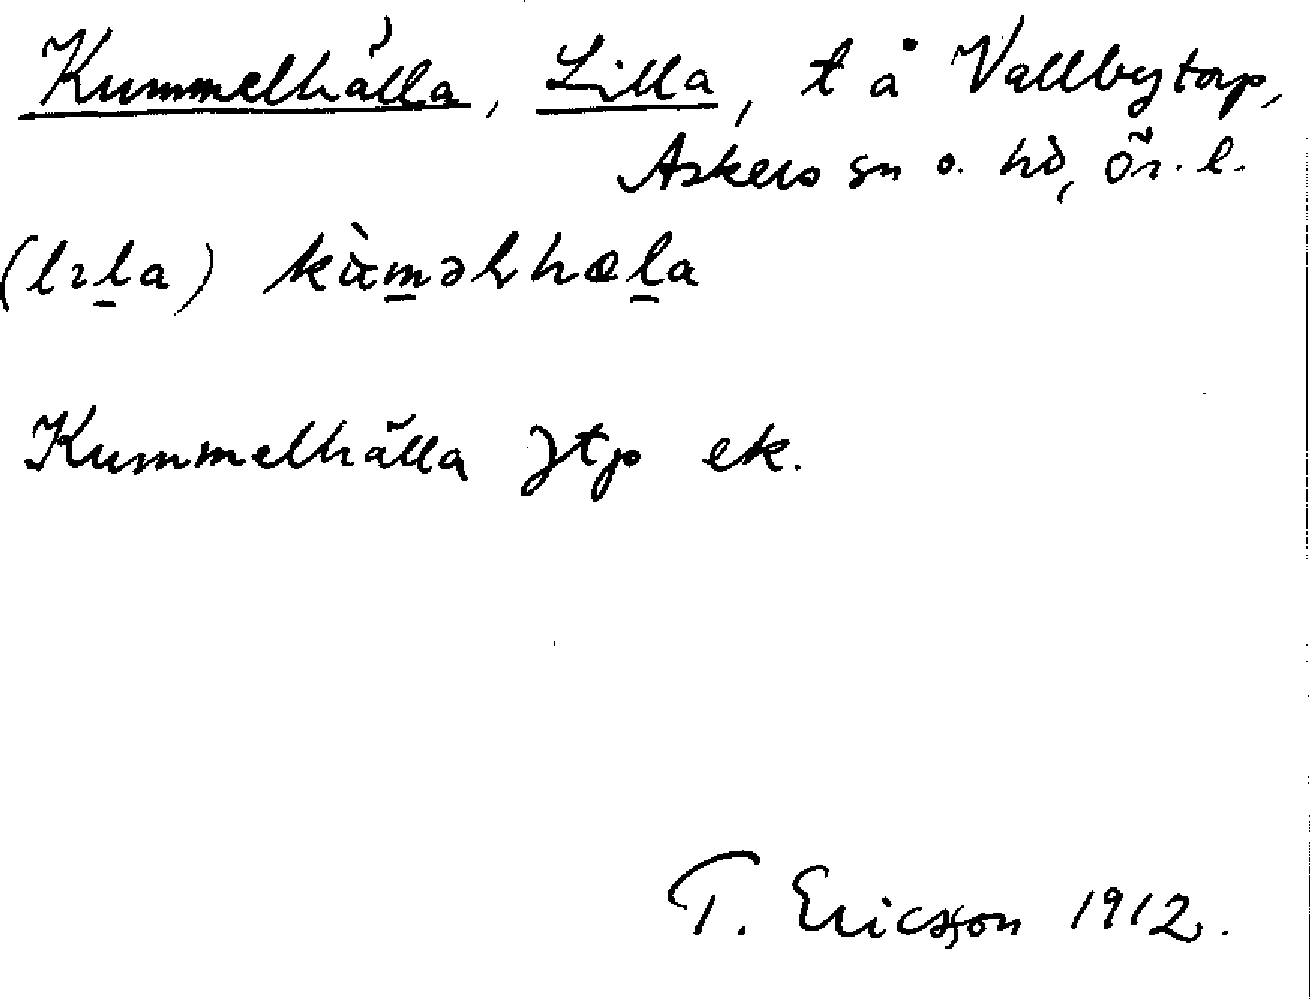 Kummelhälla, Lilla, t å Vallbytorp,
Askers sn o. hd, Ör. l.
(lɪla) kùməlhæla
Kummelhälla Jtp ek.
T. Ericsson 1912.